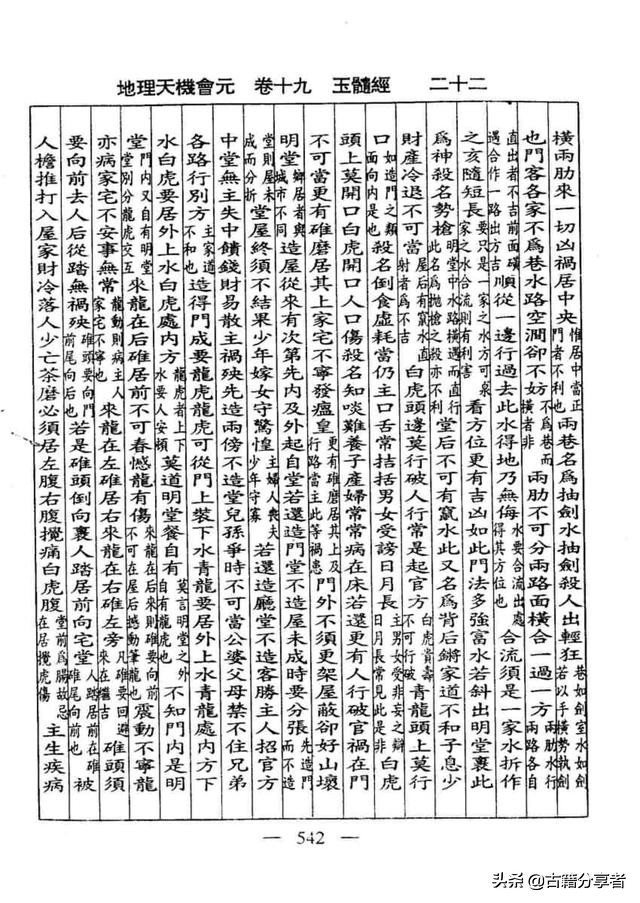 地理天機會元　卷十九　玉髓經　二十二
橫兩肋來一切凶禍居中央惟居中當正門者不利也兩巷名爲抽劍水抽劍殺人出輕狂巷如劍室水如劍若以手橫勢執劍
也門客各家不爲巷水路空濶卻不妨不爲巷而橫者非兩肋不可分兩路面橫合一過一方兩肋水行兩路各自
直出者不吉前面礦遇合作一路出方吉順從一邊行過去此水得地乃無侮水要合流出處得其方位也合流須是一家水折作
之亥隨短長要只是一家之水方可泉家之水合流則有利害看方位更有吉凶如此門法多強富水若斜出明堂裏此
爲神殺名勢槍明堂中水路橫遇而直行此名爲拋槍之殺亦不利堂后不可有竄水此又名爲背后鏘家道不和子息少
財產冷退不可當屋后有竄水直射者爲不吉白虎頭邊莫行破人行常是起官方白虎貴壽不可行破青龍頭上莫行
口如造門之類面向内是也殺名倒食虛耗當仍主口舌常拮括男女受謗日月長主男女受非妄之辯日月長常見此是非白虎
頭上莫開口白虎開口人口傷殺名知啖難養子產婦常常病在床若還更有人行破官禍在門
不可當更有碓磨居其上家宅不寧發瘟皇更有碓磨居其上及行路當主此等禍患門外不須更架屋蔽卻好山壞
明堂鄉居者與城市不同造屋從來有次第先内及外起自堂若還造門堂不造屋未成時要分張先造門而不造
堂則屋未成而分折堂屋終須不結果少年嫁女守驚惶主婦人喪夫少年守寡若還造廳堂不造客勝主人招官方
中堂無主失中饋錢財易散主禍殃先造兩傍不造堂兒孫爭時不可當公婆父母禁不住兄弟
各路行別方主家道不和也造得門成要龍虎龍虎可從門上裝下水青龍要居外上水青龍處内方下
水白虎要居外上水白虎處内方龍虎者上下水要人安頓莫道明堂餐自有莫言明堂之外自有龍虎也不知門内是明
堂門内又自有明堂堂別分龍虎交互來龍在后碓居前不可舂憾龍有傷來龍在后來則碓要向前不可在屋后撼動筆龍也震動不寧龍
亦病家宅不安事無常龍動則病主人家宅不寧也來龍在左碓居右來龍在右碓左旁凡碓要回避來在龍吉碓頭須
要向前去人后從踏無禍殃碓頭要向門前尾向后也若是碓頭倒向裏人踏居前向宅堂人踏居前在碓碓尾向前也被
人檐推打入屋家財冷落人少亡茶磨必須居左腹右腹攪痛白虎腹堂前爲腸故忌在居攪虎傷主生疾病
— 542 —
头条 @古籍分享者